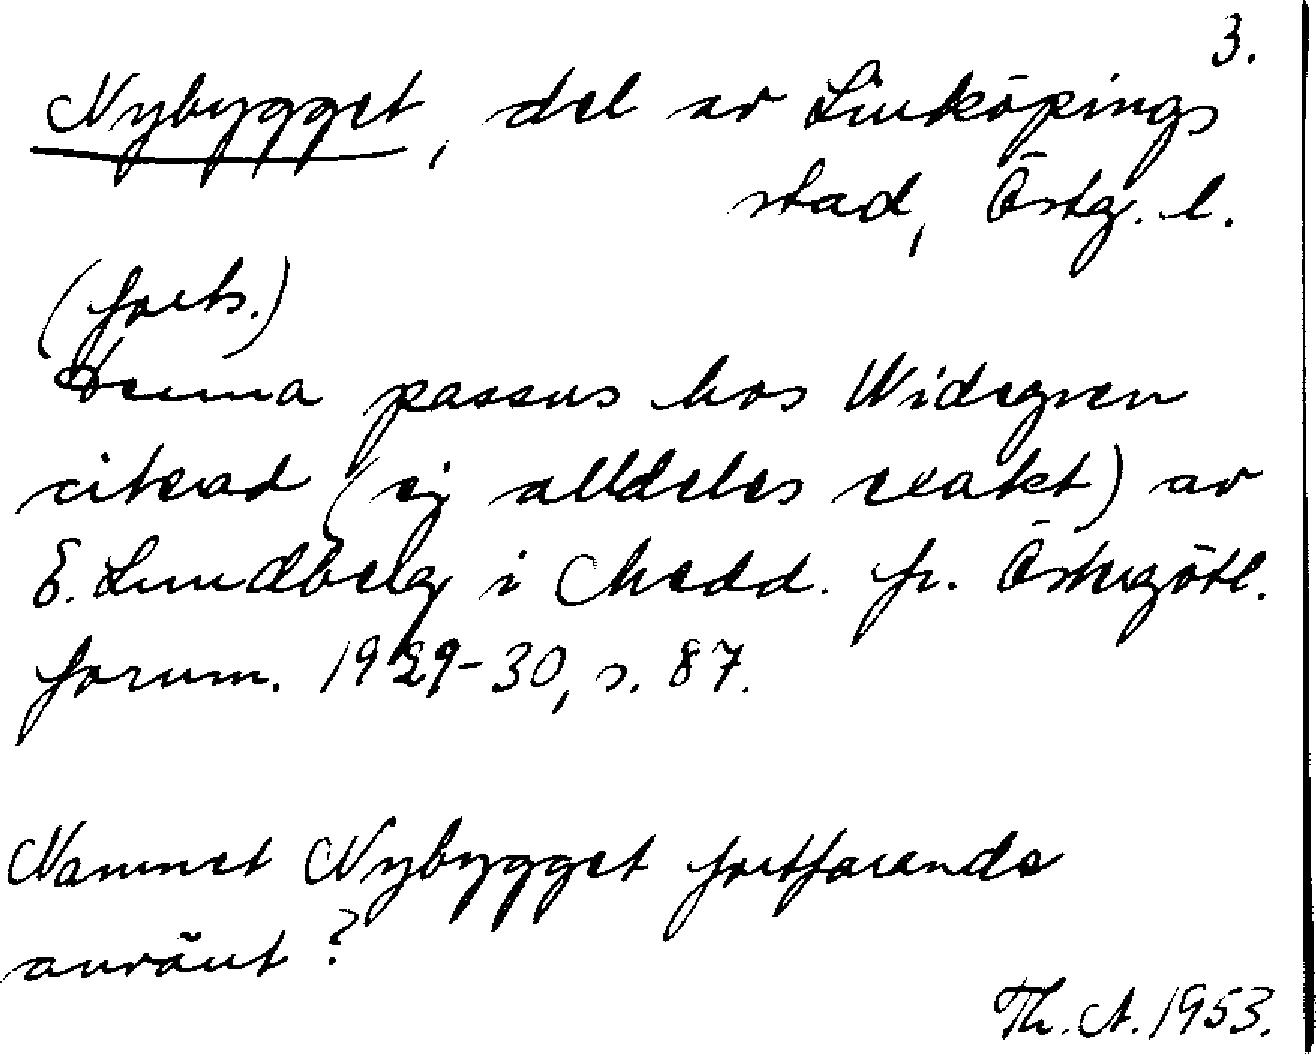 3.
Nybygget, del av Linköpings
stad, Östg. l.
(forts.)
Denna passus hos Widegren
citerad (ej alldeles exakt) av
E. Lundberg i Medd. fr. Östergötl.
fornm. 1929-30, s. 87.
Namnet Nybygget fortfarande
använt?
Th. A. 1953.